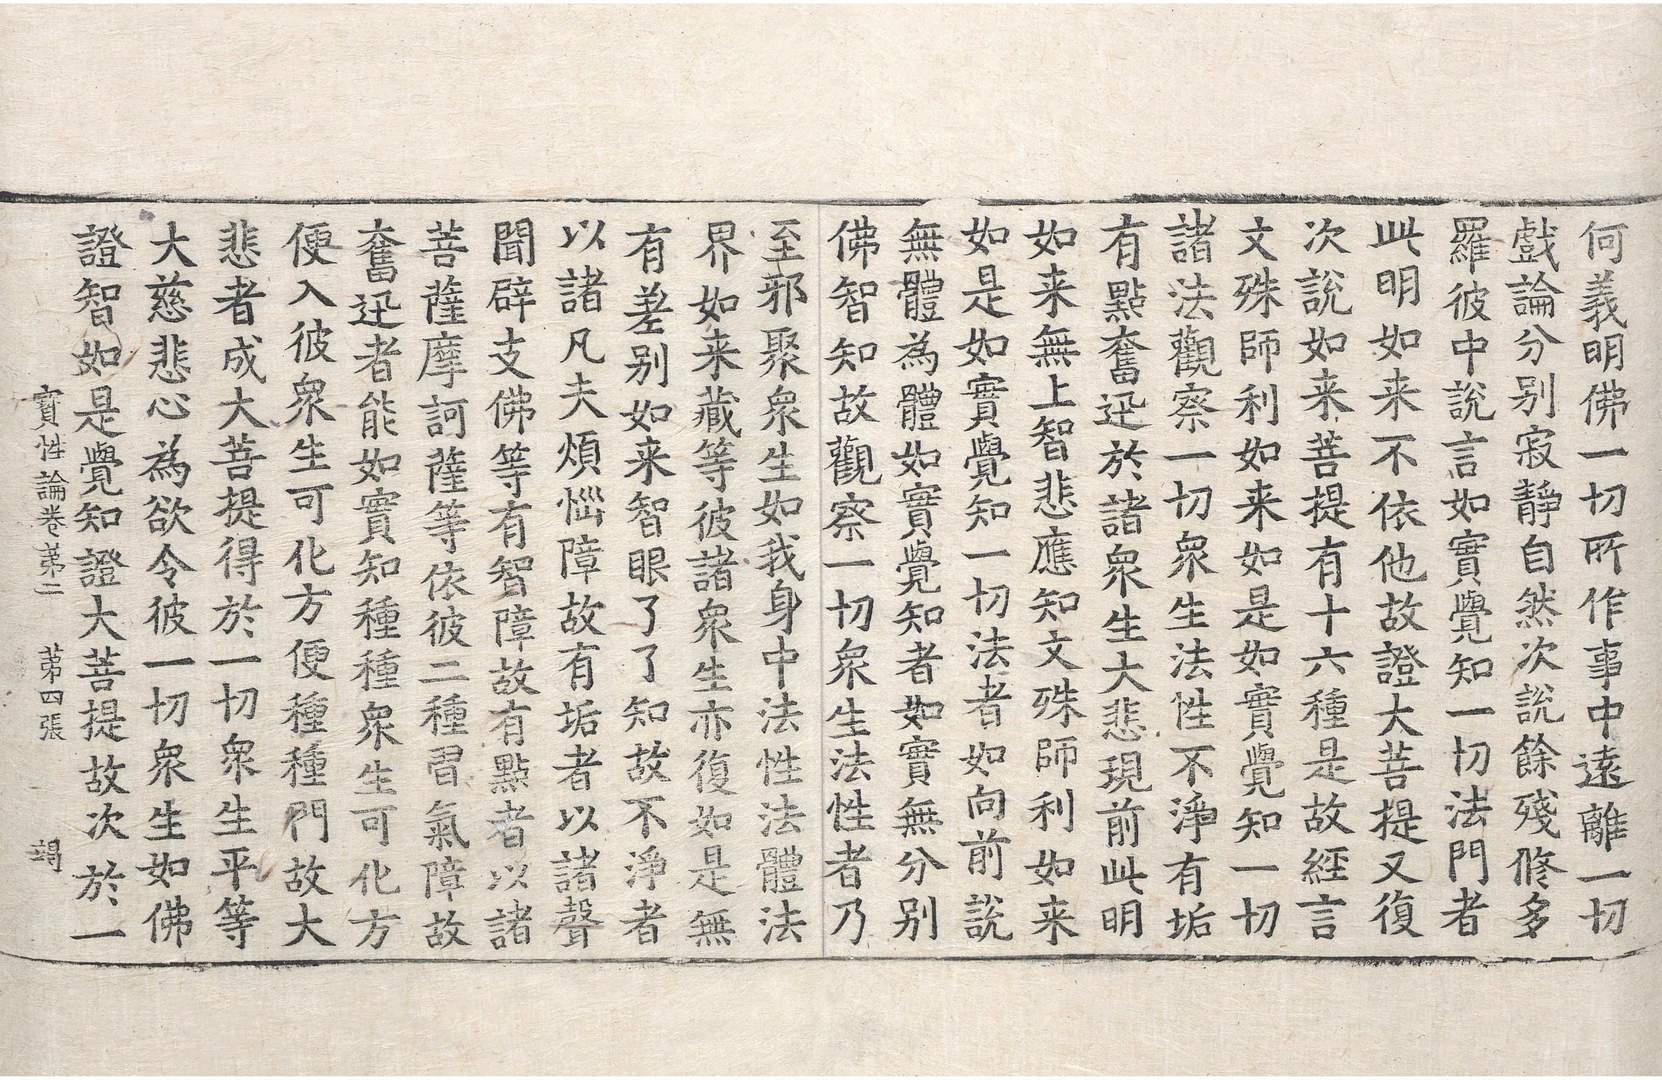 何義明佛一切所作事中遠離一切
戲論分別寂靜自然次說餘殘修多
羅彼中說言如實覺知一切法門者
此明如来不依他故證大菩提又復
次說如来菩提有十六種是故經言
文殊師利如来如是如實覺知一切
諸法觀察一切衆生法性不淨有垢
有點奮迅於諸衆生大悲現前此明
如来無上智悲應知文殊師利如来
如是如實覺知一切法者如向前說
無體為體如實覺知者如實無分別
佛智知故觀察一切衆生法性者乃
至邪聚衆生如我身中法性法體法
界如来藏等彼諸衆生亦復如是無
有差別如来智眼了了知故不淨者
以諸凡夫煩惱障故有垢者以諸聲
聞辟支佛等有智障故有點者以諸
菩薩摩訶薩等依彼二種習氣障故
奮迅者能如實知種種衆生可化方
便入彼衆生可化方便種種門故大
悲者成大菩提得於一切衆生平等
大慈悲心為欲令彼一切衆生如佛
證智如是覺知證大菩提故次於一
寶性論卷第二 第四張 竭